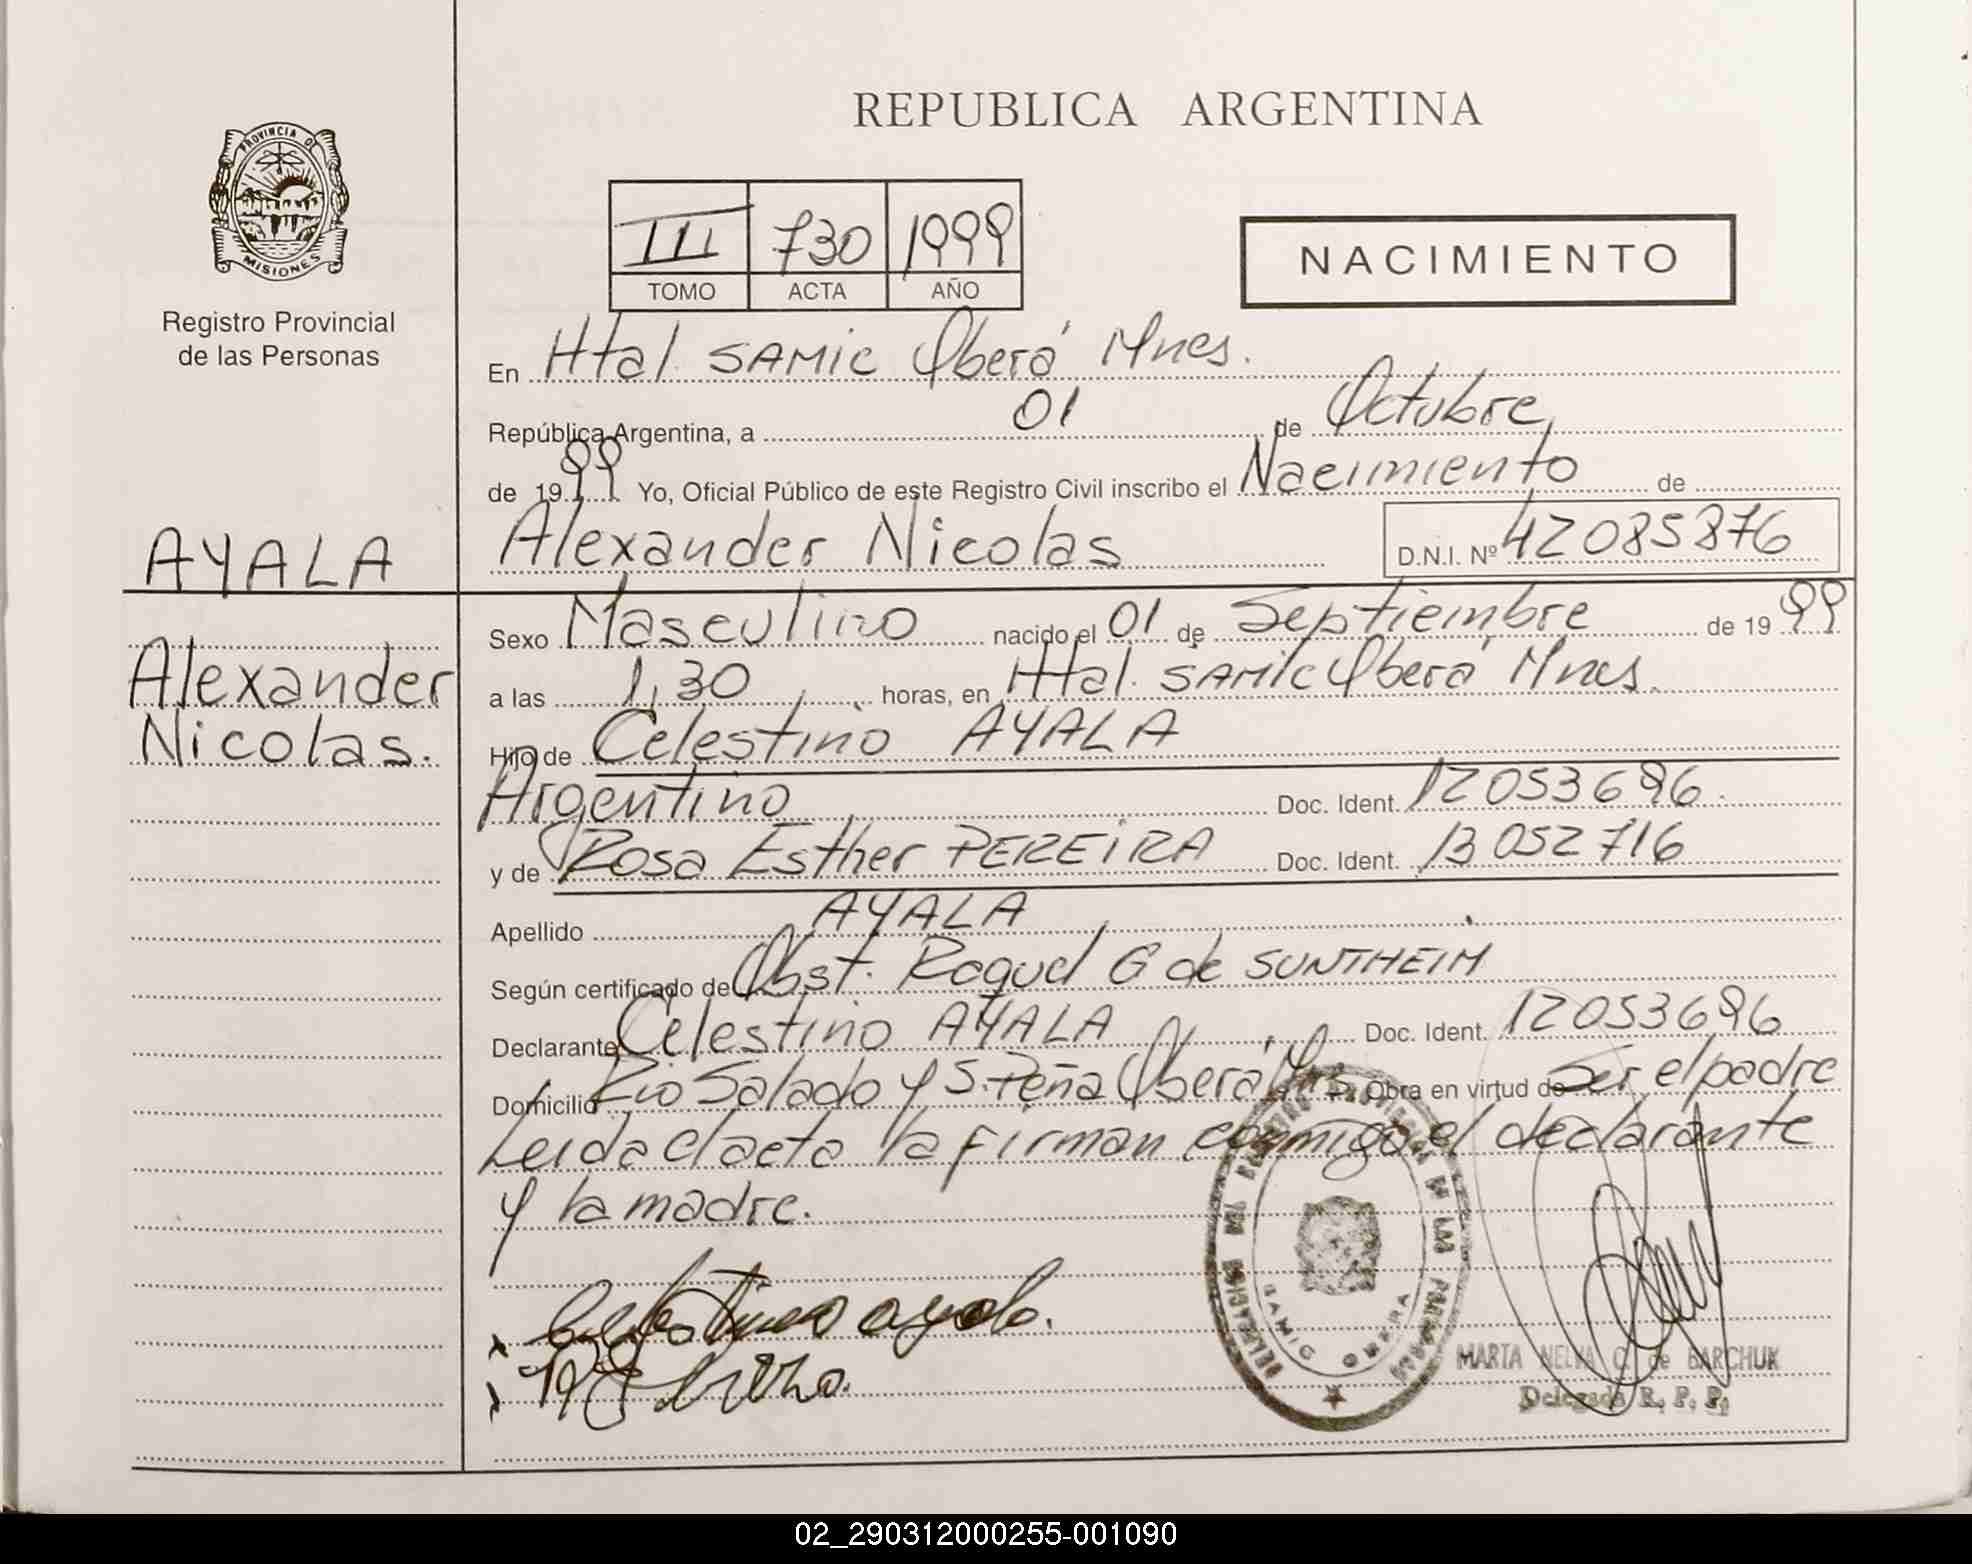 REPUBLICA ARGENTINA
PROVINCIA DE
MISIONES
Registro Provincial
de las Personas
III 730 1999
TOMO ACTA AÑO
NACIMIENTO
En Htal. SAMIC Oberá Mnes.
República Argentina, a 01 de Octubre
de 1999 Yo, Oficial Público de este Registro Civil inscribo el Nacimiento de
Alexander Nicolas D.N.I. Nº 42085876
AYALA
Alexander
Nicolas.
Sexo Masculino nacido el 01 de Septiembre de 1999
a las 1,30 horas, en Htal. SAMIC Oberá Mnes.
Hijo de Celestino AYALA
Argentino Doc. Ident. 12053696.
y de Rosa Esther PEREIRA Doc. Ident. 13052716
Apellido AYALA
Según certificado de Obst. Raquel G de SUNTHEIM
Declarante Celestino AYALA Doc. Ident. 12053696
Domicilio Rio Salado y S. Peña Oberá Mnes Obra en virtud de Ser el padre
Leida el acta la firman conmigo el declarante
y la madre.
Celestino ayala.
SAMIC OBERA
MARTA NELVA C. de BARCHUK
Delegada R. P. P.
02_290312000255-001090